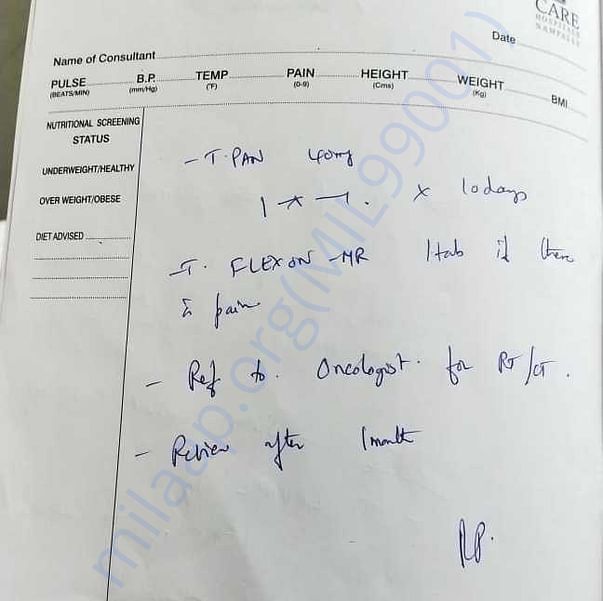 CARE
HOSPITALS
NAMPALLY
Date
Name of Consultant
PULSE B.P. TEMP PAIN HEIGHT WEIGHT BMI
(BEATS/MIN) (mm/Hg) (°F) (0-9) (Cms) (Kg)
NUTRITIONAL SCREENING
STATUS
UNDERWEIGHT/HEALTHY
OVER WEIGHT/OBESE
DIET ADVISED
- T. PAN 40mg
1 - x - 1. x 10 days
- T. FLEXON -MR 1 tab if there
is pain
- Ref to. Oncologist. for RT/CT.
- Review after 1 month
milaap.org(MIL99001)